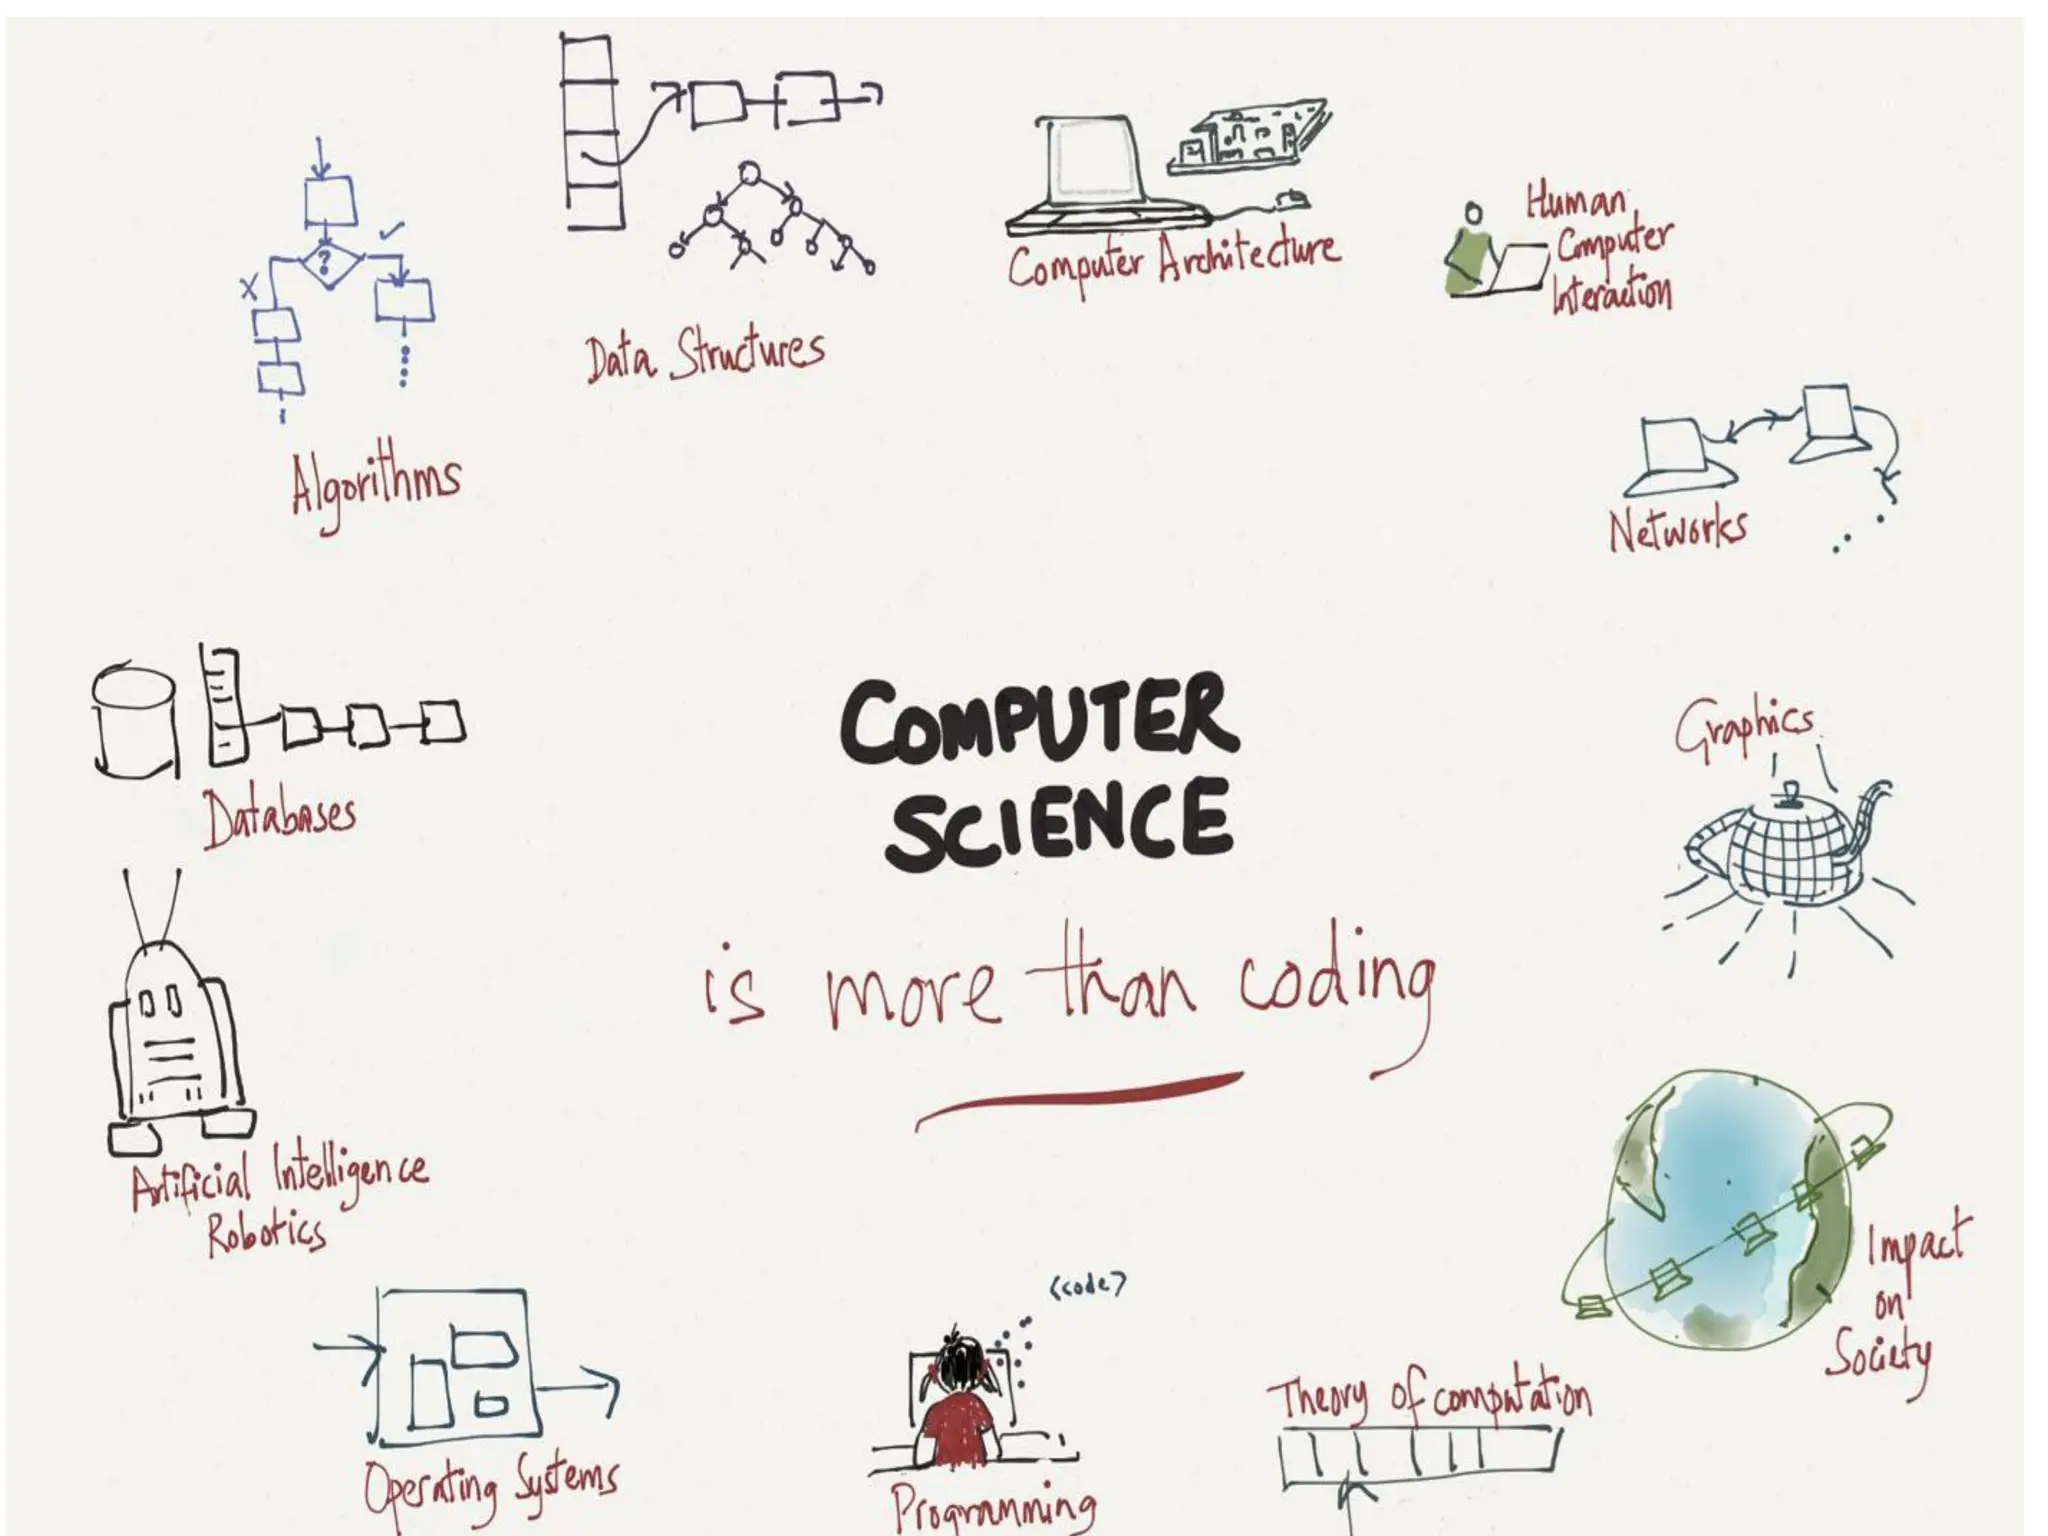 Computer Architecture
Human
Computer
Interaction
Data Structures
Algorithms
Networks
Databases
COMPUTER
SCIENCE
Graphics
is more than coding
Artificial Intelligence
Robotics
Impact
on
Society
<code>
Theory of computation
Operating Systems
Programming
?